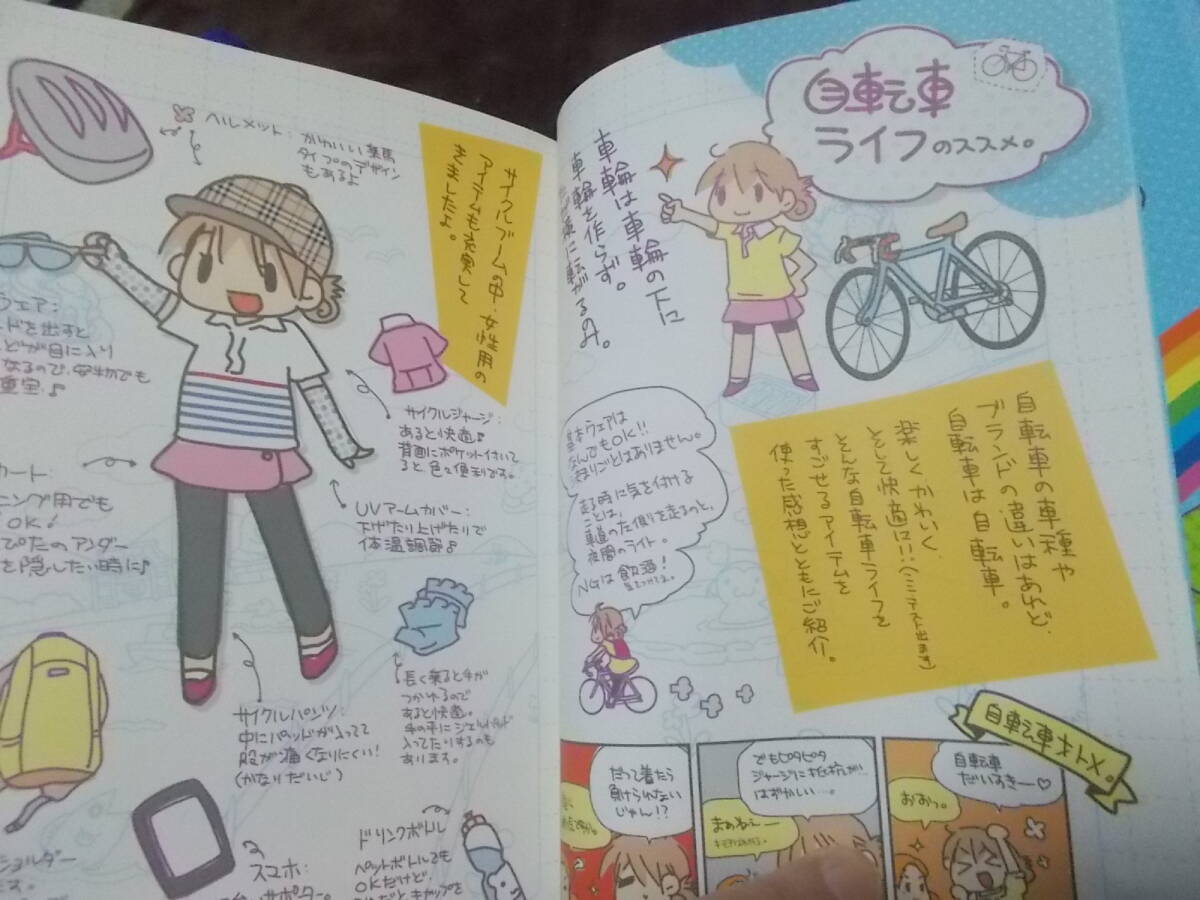 自転車
ライフのススメ。
車輪は車輪の下に
車輪を作らず。
に転がるのみ。
自転車の車種や
ブランドの違いはあれど、
自転車は自転車。
楽しくかわいく、
そして快適に!!(ミニテスト出ます)
そんな自転車ライフを
すごせるアイテムを
使った感想とともにご紹介。
ウェアは
なんでもOK!!
ありません。
走る時に気を付ける
ことは、
車道の左側を走るのと、
夜間のライト。
NGは飲酒!
自転車オトメ。
自転車
だいすきー♡
おおっ。
でもピタピタ
ジャージに抵抗が…
はずかしい…。
まあねぇー
だって着たら
負けられない
じゃん!?
サイクルブームの中、女性用の
アイテムも充実して
きましたよ。
ヘルメット:かわいい乗馬
タイプのデザイン
もあるよ
ウェア:
ドを出すと
どが目に入り
なるので、安物でも
重宝♪
サイクルジャージ:
あると快適♪
背面にポケット付いて
ると色々便利です。
UVアームカバー:
下げたり上げたりで
体温調節♪
カート:
ニング用でも
OK!
ぴたのアンダー
を隠したい時に♪
サイクルパンツ:
中にパッドが入ってて
股が痛くなりにくい!
(かなりだいじ)
長く乗ると手が
つかれるので
あると快適。
手の平にジェルパッド
入ってたりするのも
あります。
ショルダー
ます。
スマホ:
サポター。
ドリンクボトル
ペットボトルでも
OKだけど、
キャップを